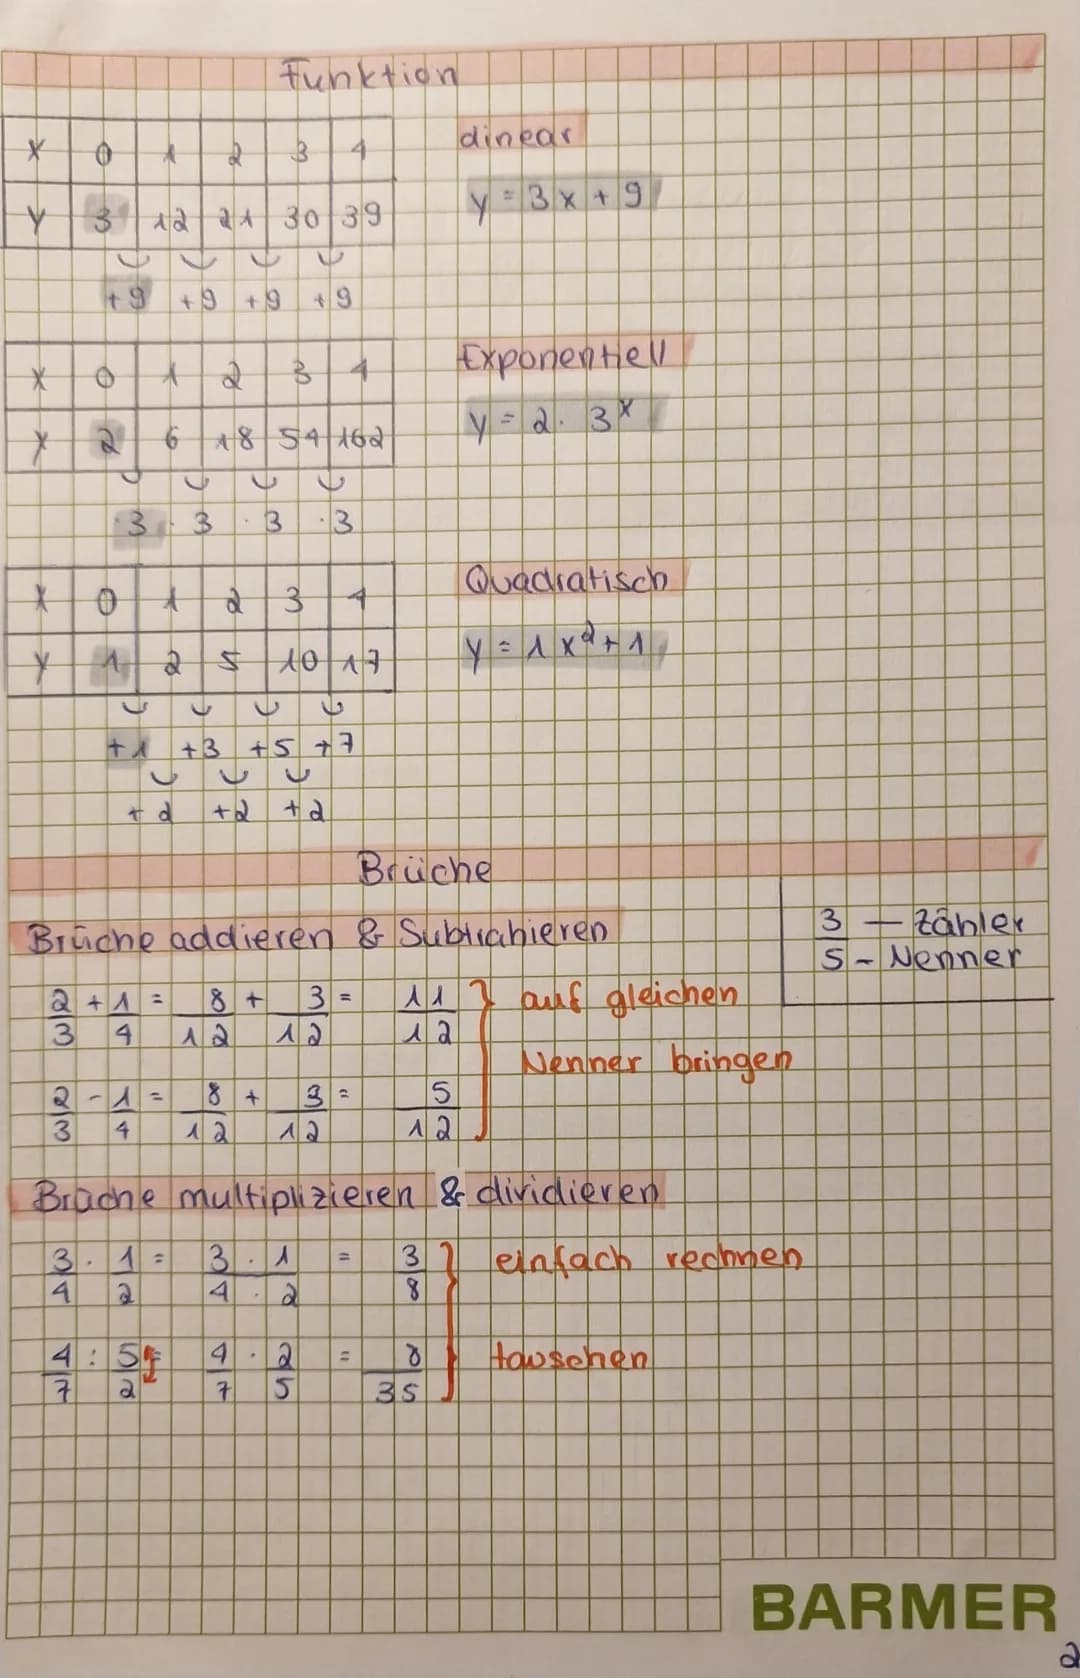 Funktion
x 0 1 2 3 4
y 3 12 21 30 39
+9 +9 +9 +9
Linear
y = 3x + 9
x 0 1 2 3 4
y 2 6 18 54 162
·3 ·3 ·3 ·3
Exponentiell
y = 2 · 3^x
x 0 1 2 3 4
y 1 2 5 10 17
+1 +3 +5 +7
+2 +2 +2
Quadratisch
y = 1x² + 1
Brüche
3/5 — Zähler
- Nenner
Brüche addieren & Subtrahieren
2/3 + 1/4 = 8/12 + 3/12 = 11/12
2/3 - 1/4 = 8/12 + 3/12 = 5/12
auf gleichen
Nenner bringen
Brüche multiplizieren & dividieren
3/4 · 1/2 = 3 · 1/4 · 2 = 3/8 einfach rechnen
4/7 : 5/2 = 4/7 · 2/5 = 8/35 tauschen
BARMER
2